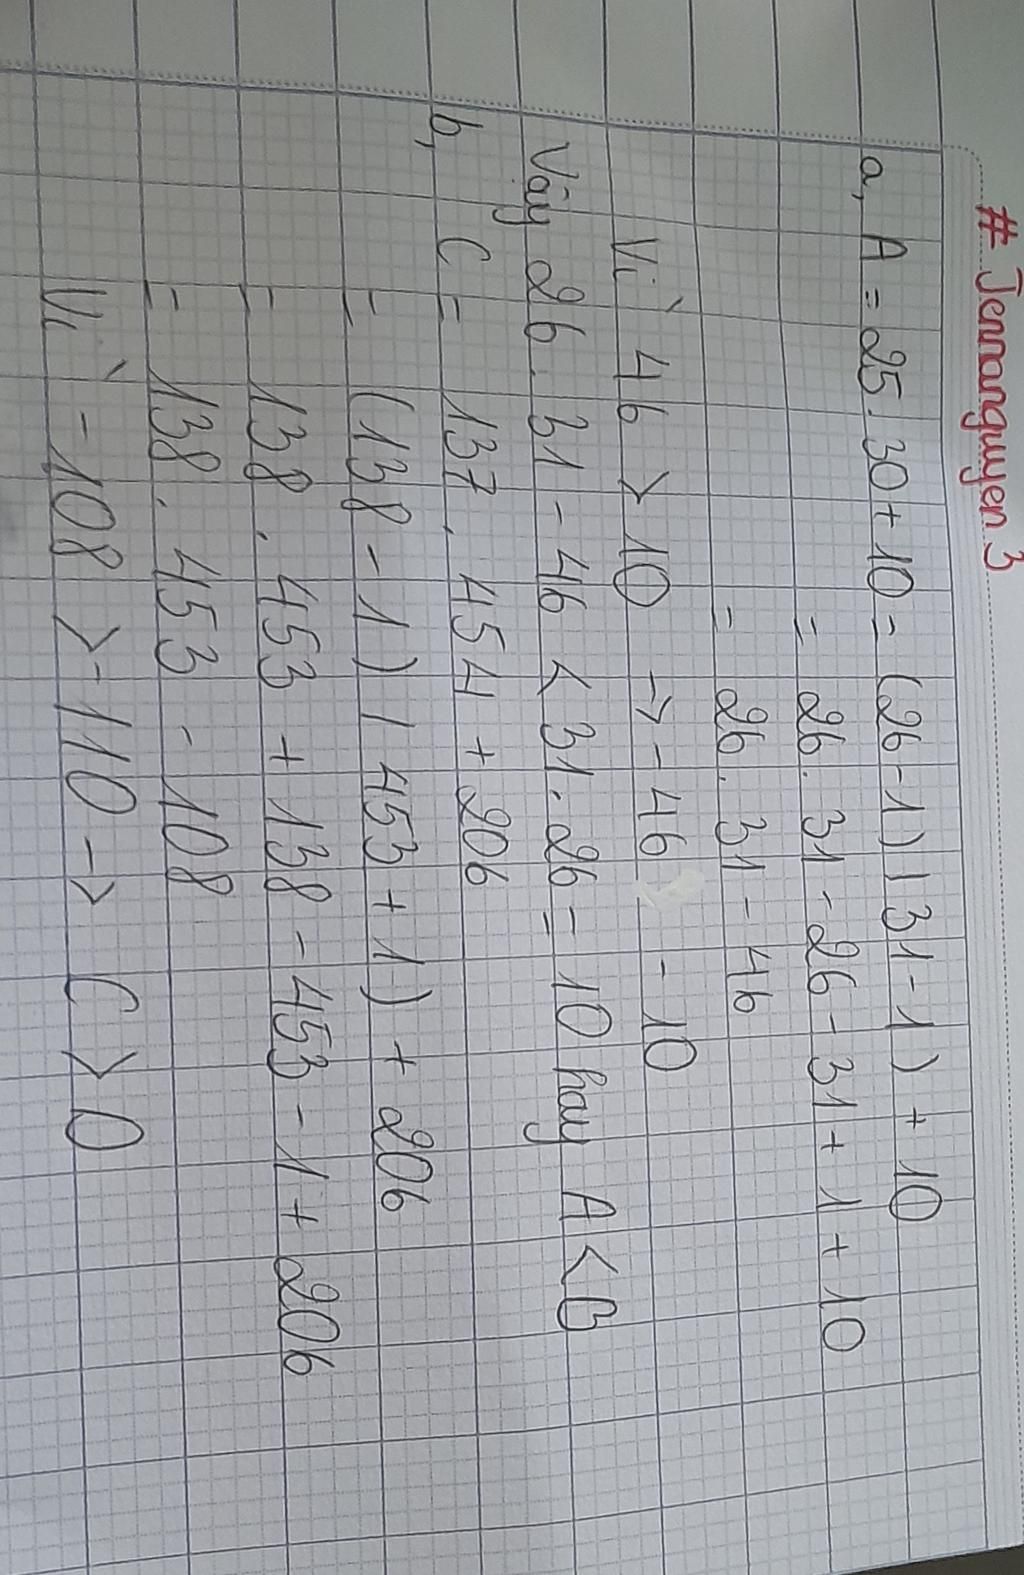 # Jennanguyen 3
a, A = 25. 30 + 10 = (26 - 1) ( 31 - 1) + 10
= 26. 31 - 26 - 31 + 1 + 10
= 26. 31 - 46
Vì 46 > 10 → - 46 - 10
Vậy 26. 31 - 46 < 31. 26 = 10 hay A < B
b, C = 137. 454 + 206
= (138 - 1) ( 453 + 1) + 206
= 138. 453 + 138 - 453 - 1 + 206
= 138. 453 - 108
Vì - 108 > - 110 → C < D